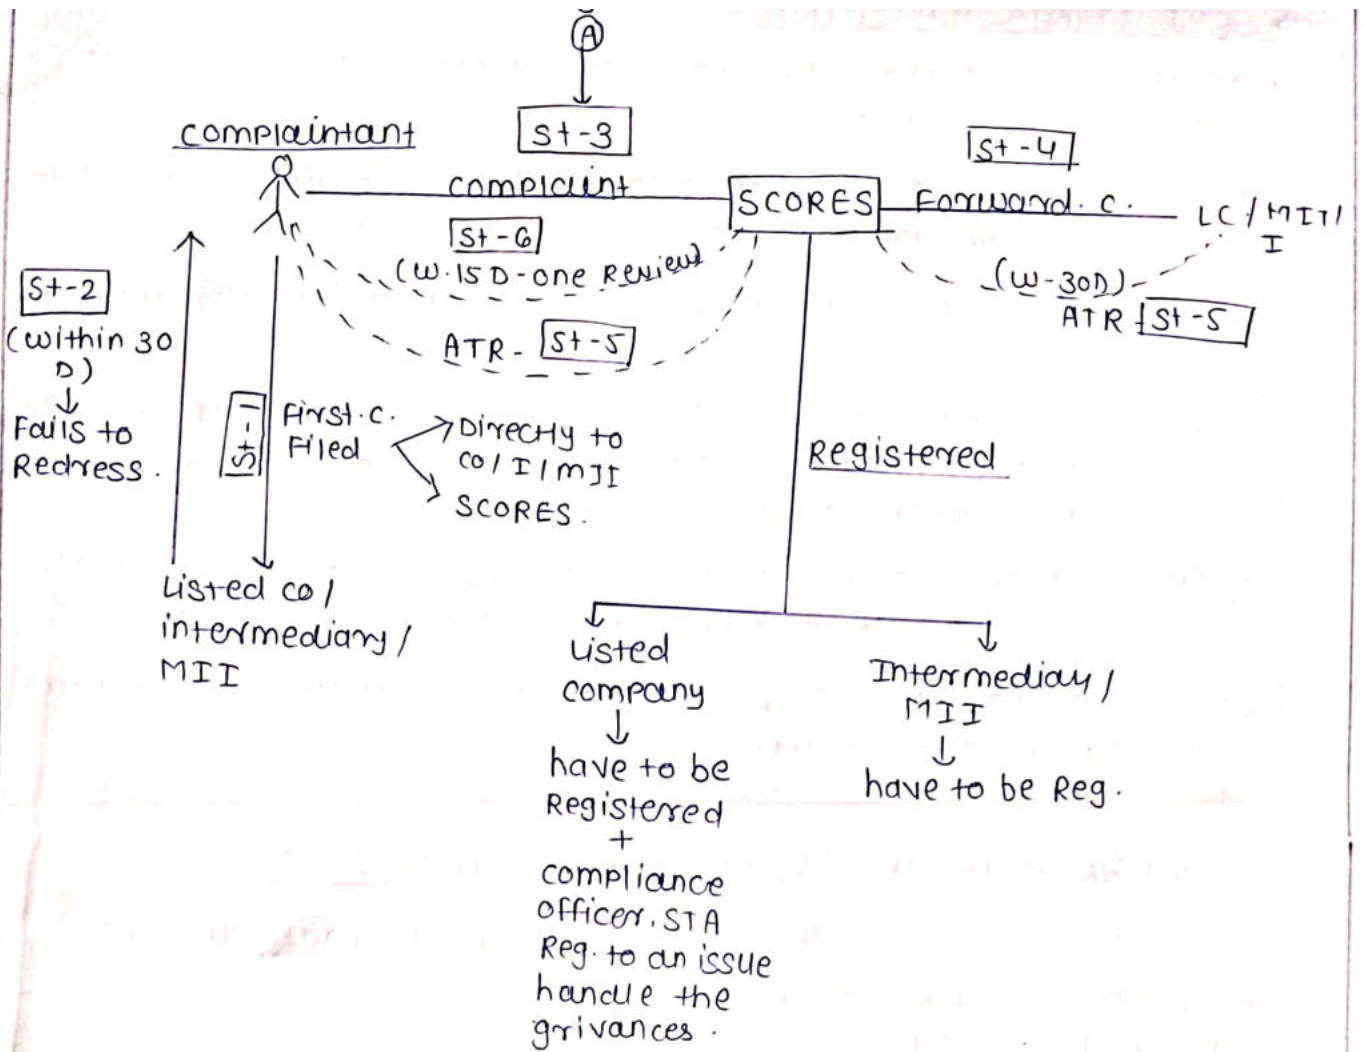 A
St-3
complaintant
complaint
SCORES
St-4
Forward. c.
LC / MII /
I
St-6
(W.15D-one Review)
(W-30D)
ATR
St-5
ATR-
St-5
St-2
(within 30
D)
Fails to
Redress.
St-1
First.c.
Filed
Directly to
co/I/MII
SCORES.
Registered
Listed co/
intermediary/
MII
Listed
company
have to be
Registered
+
compliance
officer. STA
Reg. to an issue
handle the
grivances.
Intermediary/
MII
have to be Reg.